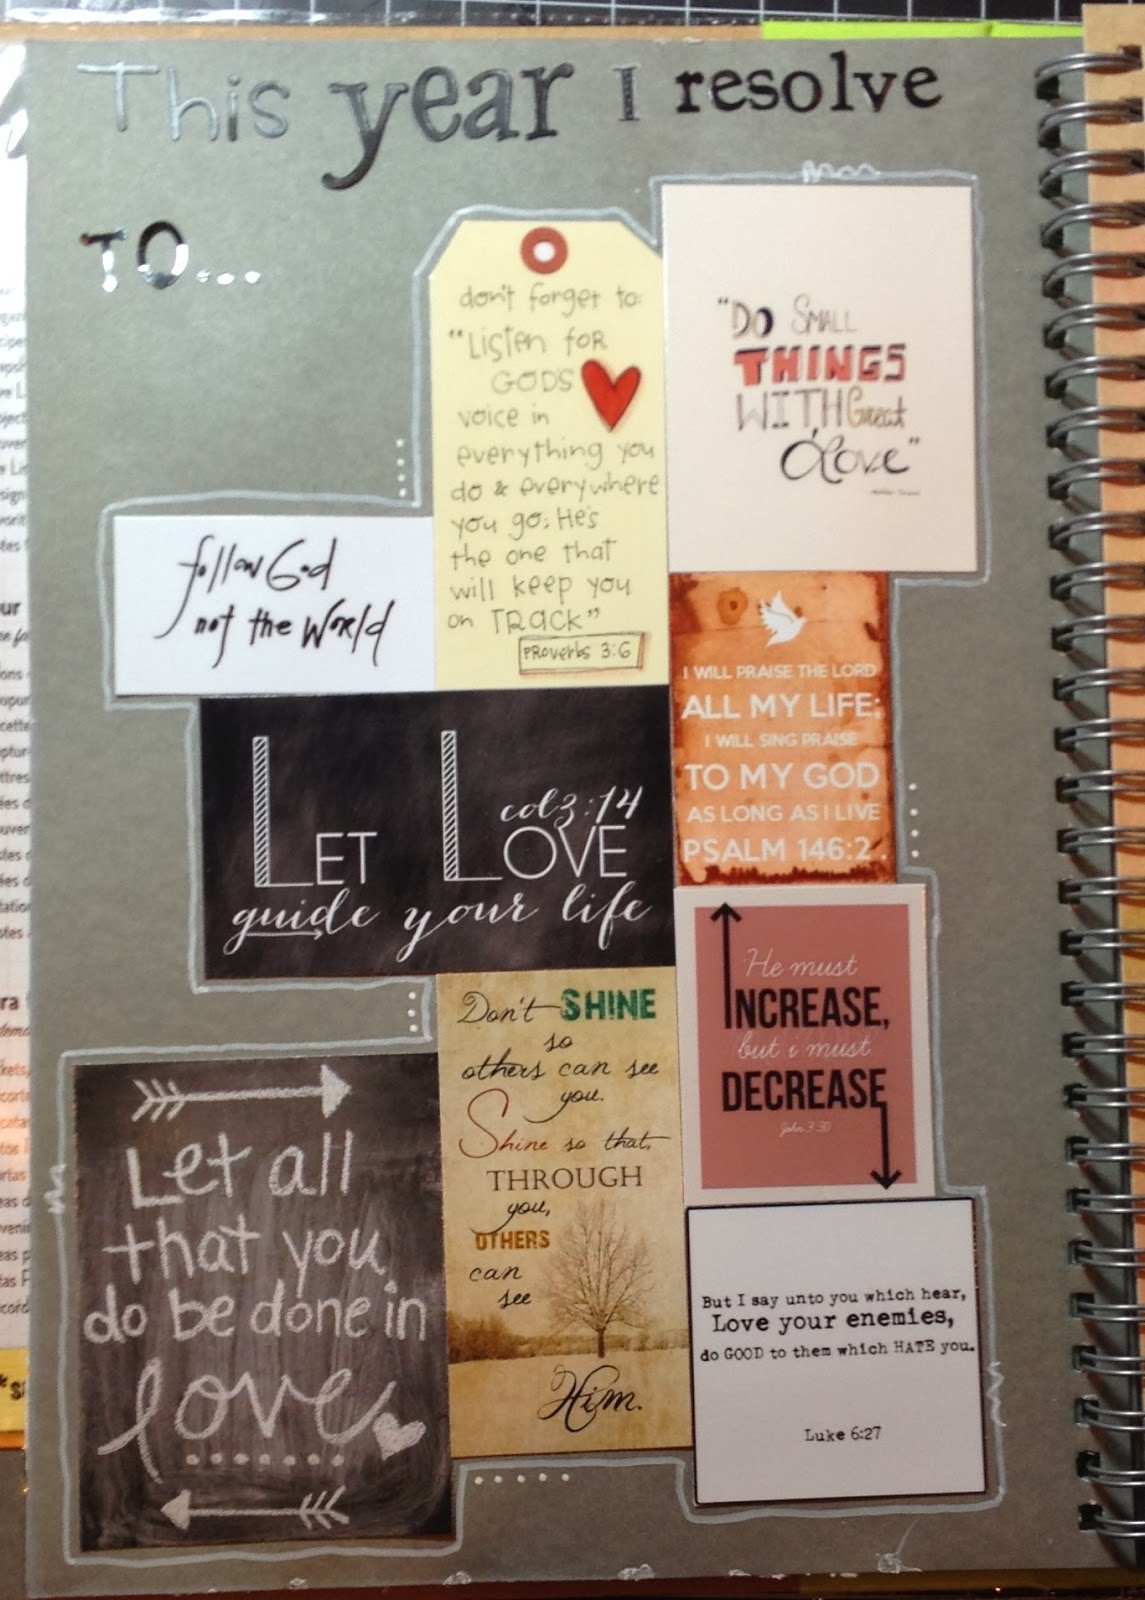 This year I resolve
TO...
don't forget to:
"Listen for
GODS
voice in
everything you
do & everywhere
you go; He's
the one that
will keep you
on TRACK"
Proverbs 3:6
"DO SMALL
THINGS
WITH Great
Love"
follow God
not the World
I WILL PRAISE THE LORD
ALL MY LIFE;
I WILL SING PRAISE
TO MY GOD
AS LONG AS I LIVE
PSALM 146:2.
LET LOVE
col 3:14
guide your life
He must
INCREASE,
but i must
DECREASE
John 3:30
Don't SHINE
so
others can see
you.
Shine so that,
THROUGH
you,
OTHERS
can
see
Him.
Let all
that you
do be done in
love
But I say unto you which hear,
Love your enemies,
do GOOD to them which HATE you.
Luke 6:27